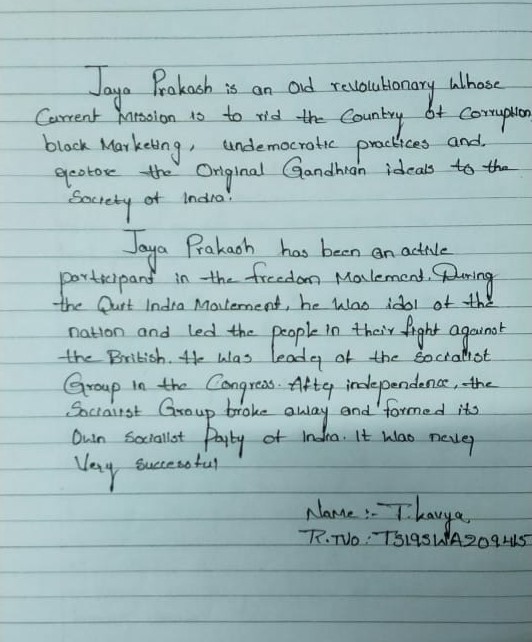 Jaya Prakash is an old revolutionary whose
Current Mission is to rid the Country of Corruption
black Marketing, undemocratic practices and
restore the Original Gandhian ideals to the
Society of India.
Jaya Prakash has been an active
participant in the freedom Movement. During
the Quit India Movement, he was idol of the
nation and led the people in their fight against
the British. He was leader of the Socialist
Group in the Congress. After independence, the
Socialist Group broke away and formed its
Own Socialist Party of India. It was never
Very Successful
Name :- T. kavya
R.No : TS19SWA209415